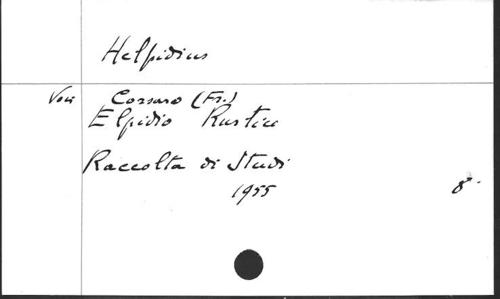 Helpidius
Voir Corsaro (Fr.)
Elpidio Rustico
Raccolta di Studi
1955 8°